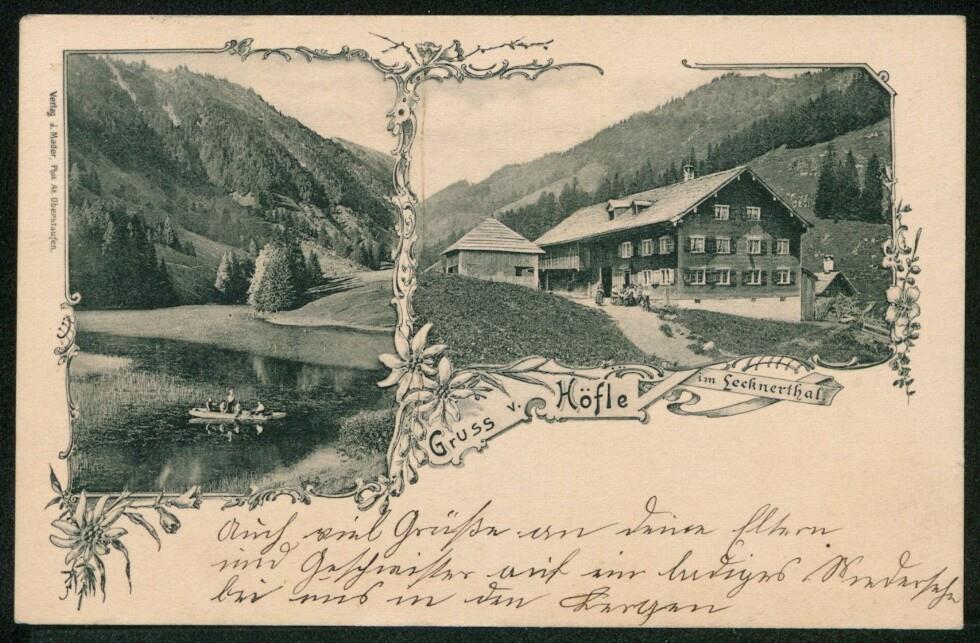 Verlag J. Mader, At Oberstaufen.
Gruss v. Höfle im Lecknerthal.
Auch viel Grüße an deine Eltern
und Geschwister auf ein Wiedersehe
bei uns in den Bergen